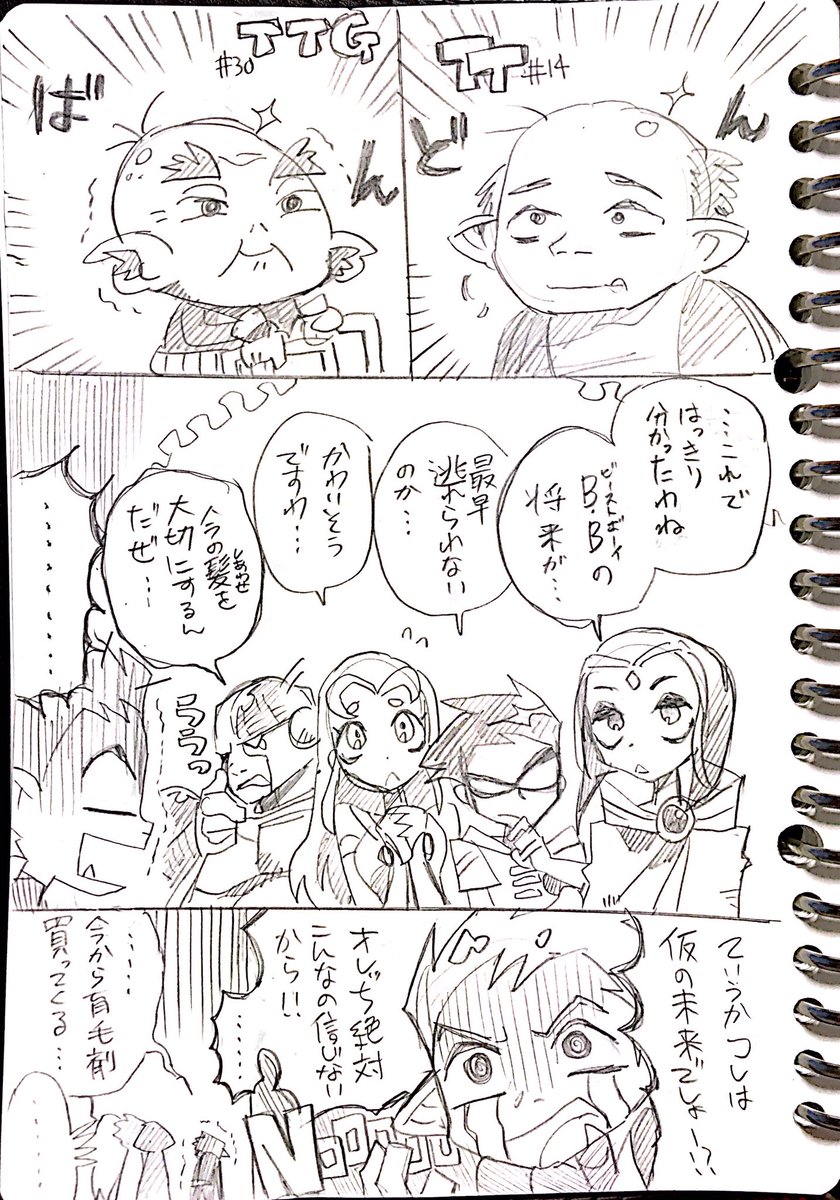 TT #14
どん
TTG #30
ばん
…これで
はっきり
分かったわね
B.Bの
ビーストボーイ
将来が…
最早
逃れられない
のか…
かわいそう
ですわ…
今の髪を
しあわせ
大切にするん
だぜ…
うぅっ
………
ていうかコレは
仮の未来でしょー!?
オレっち絶対
こんなの信じない
から!!
……
NOOOOOO
……
今から育毛剤
買ってくる…
……